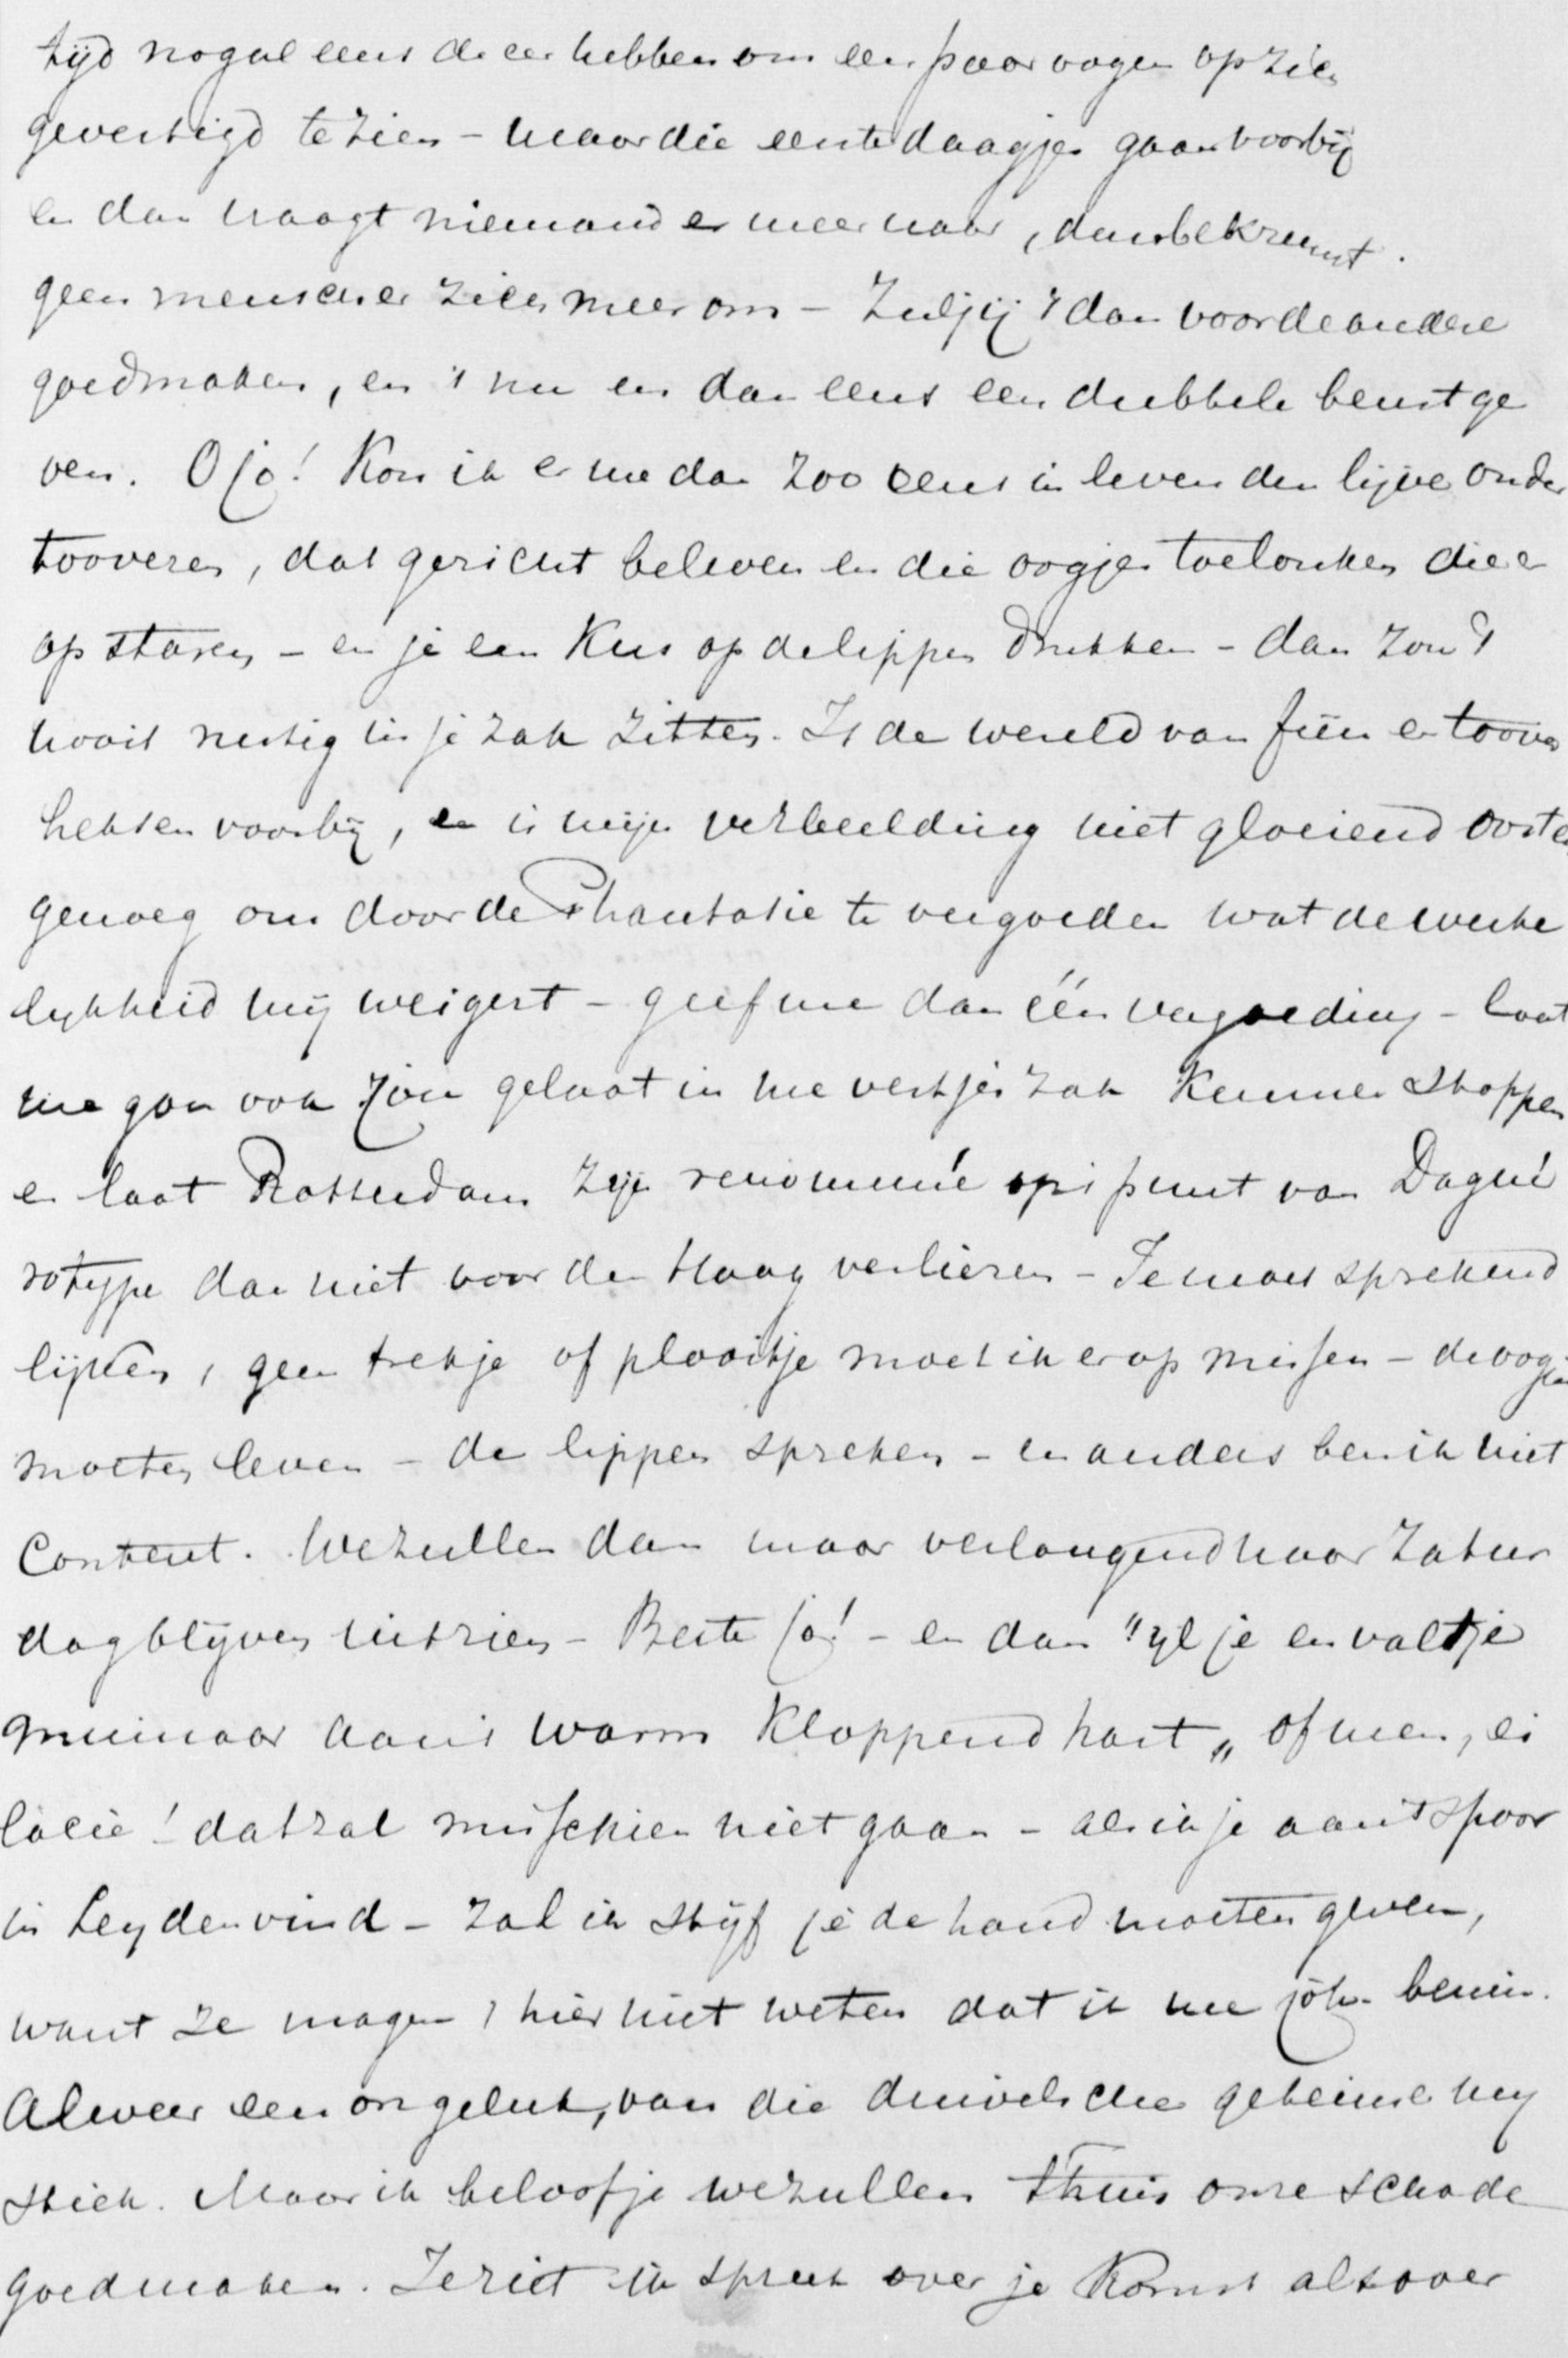 tijd nogal eens de eer hebben om een paar oogen op zich
gevestigd te zien – maar die eerste daagjes gaan voorbij
en dan vraagt niemand er meer naar, dan bekreunt
geen mensch er zich meer om – Zul jij 't dan voor de andere
goedmaken, en 't nu en dan eens een dubbele beurt ge
ven. O Jo! Kon ik er me dan zoo eens in levenden lijve onder
tooveren, dat gezicht beleven en die oogjes toelonken die er
op staren – en je een Kus op de lippen drukken – dan zou 't
nooit rustig in je zak zitten. Is de wereld van feeën en toover
heksen voorbij, en is mijn verbeelding niet gloeiend oosters
genoeg om door de Phantasie te vergoeden wat de werke
lykheid mij weigert – geef me dan één vergoeding – laat
me gou ook jou gelaat in me vestjes zak Kunnen stoppen
en laat Rotterdam zijn renommé op 't punt van Dague
rotype dan niet voor den Haag verliezen – Je moet sprekend
lijken, geen trekje of plooitje moet ik er op missen – de oogjes
moeten leven – de lippen spreken – en anders ben ik niet
Content. We zullen dan maar verlangend naar Zatur
dag blijven uitzien – Beste Jo! – en dan "yl je en valt je
aan 't warm Kloppend hart „ of neen, ei
lacie! dat zal misschien niet gaan – als ik je aan 't spoor
in Leyden vind – zal ik stijf je de hand moeten geven,
want ze mogen 't hier niet weten dat ik me Joh. bemin.
Alweer een ongeluk, van die duivelsche geheimenny
stiek. Maar ik beloof je we zullen thuis onze schade
goedmaken. Je ziet ik spreek over je Komst als over